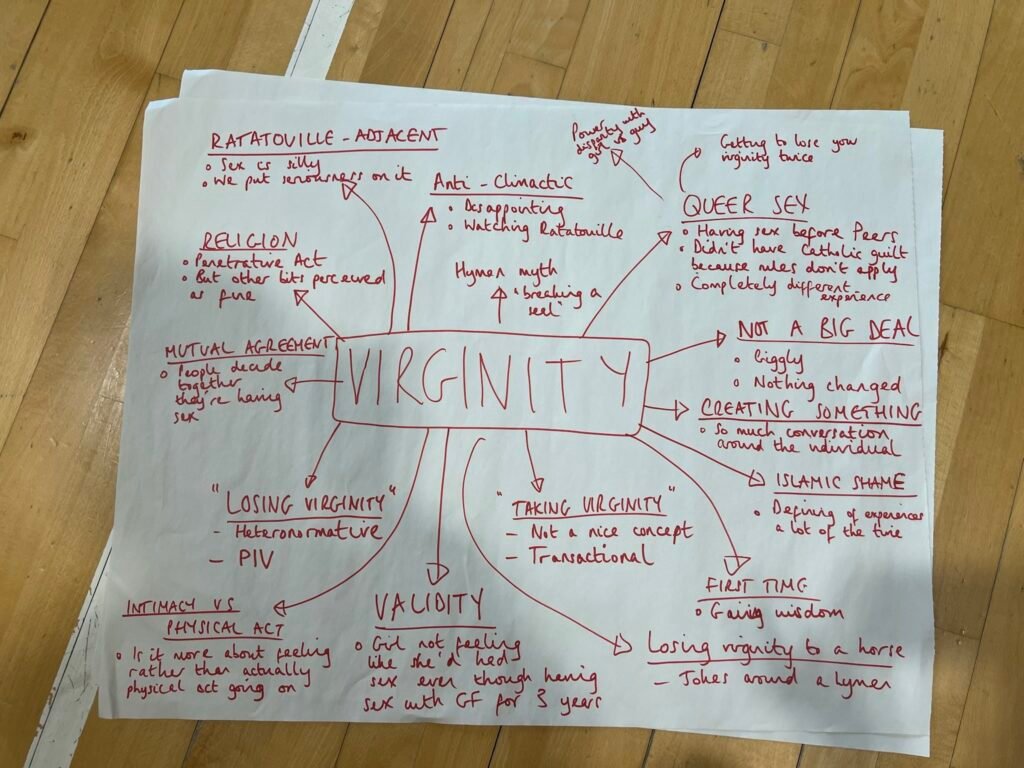 RATATOUILLE - ADJACENT
Sex is silly
We put seriousness on it
Anti - Climactic
Disappointing
Watching Ratatouille
Power with
disparity with
girl vs guy
Getting to lose your
virginity twice
QUEER SEX
Having sex before Peers
Didn't have Catholic guilt
because rules don't apply
Completely different
experience
RELIGION
Penetrative Act
But other bits perceived
as fine
Hymen myth
"breaking a
seal"
MUTUAL AGREEMENT
People decide
together
they're having
sex
VIRGINITY
NOT A BIG DEAL
Giggly
Nothing changed
CREATING SOMETHING
So much conversation
around the individual
ISLAMIC SHAME
Defining of experiences
a lot of the time
"LOSING VIRGINITY"
- Heteronormative
- PIV
"TAKING VIRGINITY"
- Not a nice concept
- Transactional
FIRST TIME
Gaining wisdom
INTIMACY VS
PHYSICAL ACT
Is it more about feeling
rather than actually
physical act going on
VALIDITY
Girl not feeling
like she'd had
sex even though having
sex with GF for 3 years
Losing virginity to a horse
- Jokes around a hymen